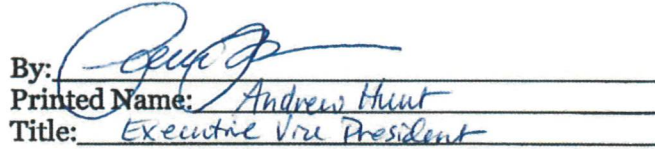 By:
Printed Name: Andrew Hunt
Title: Executive Vice President